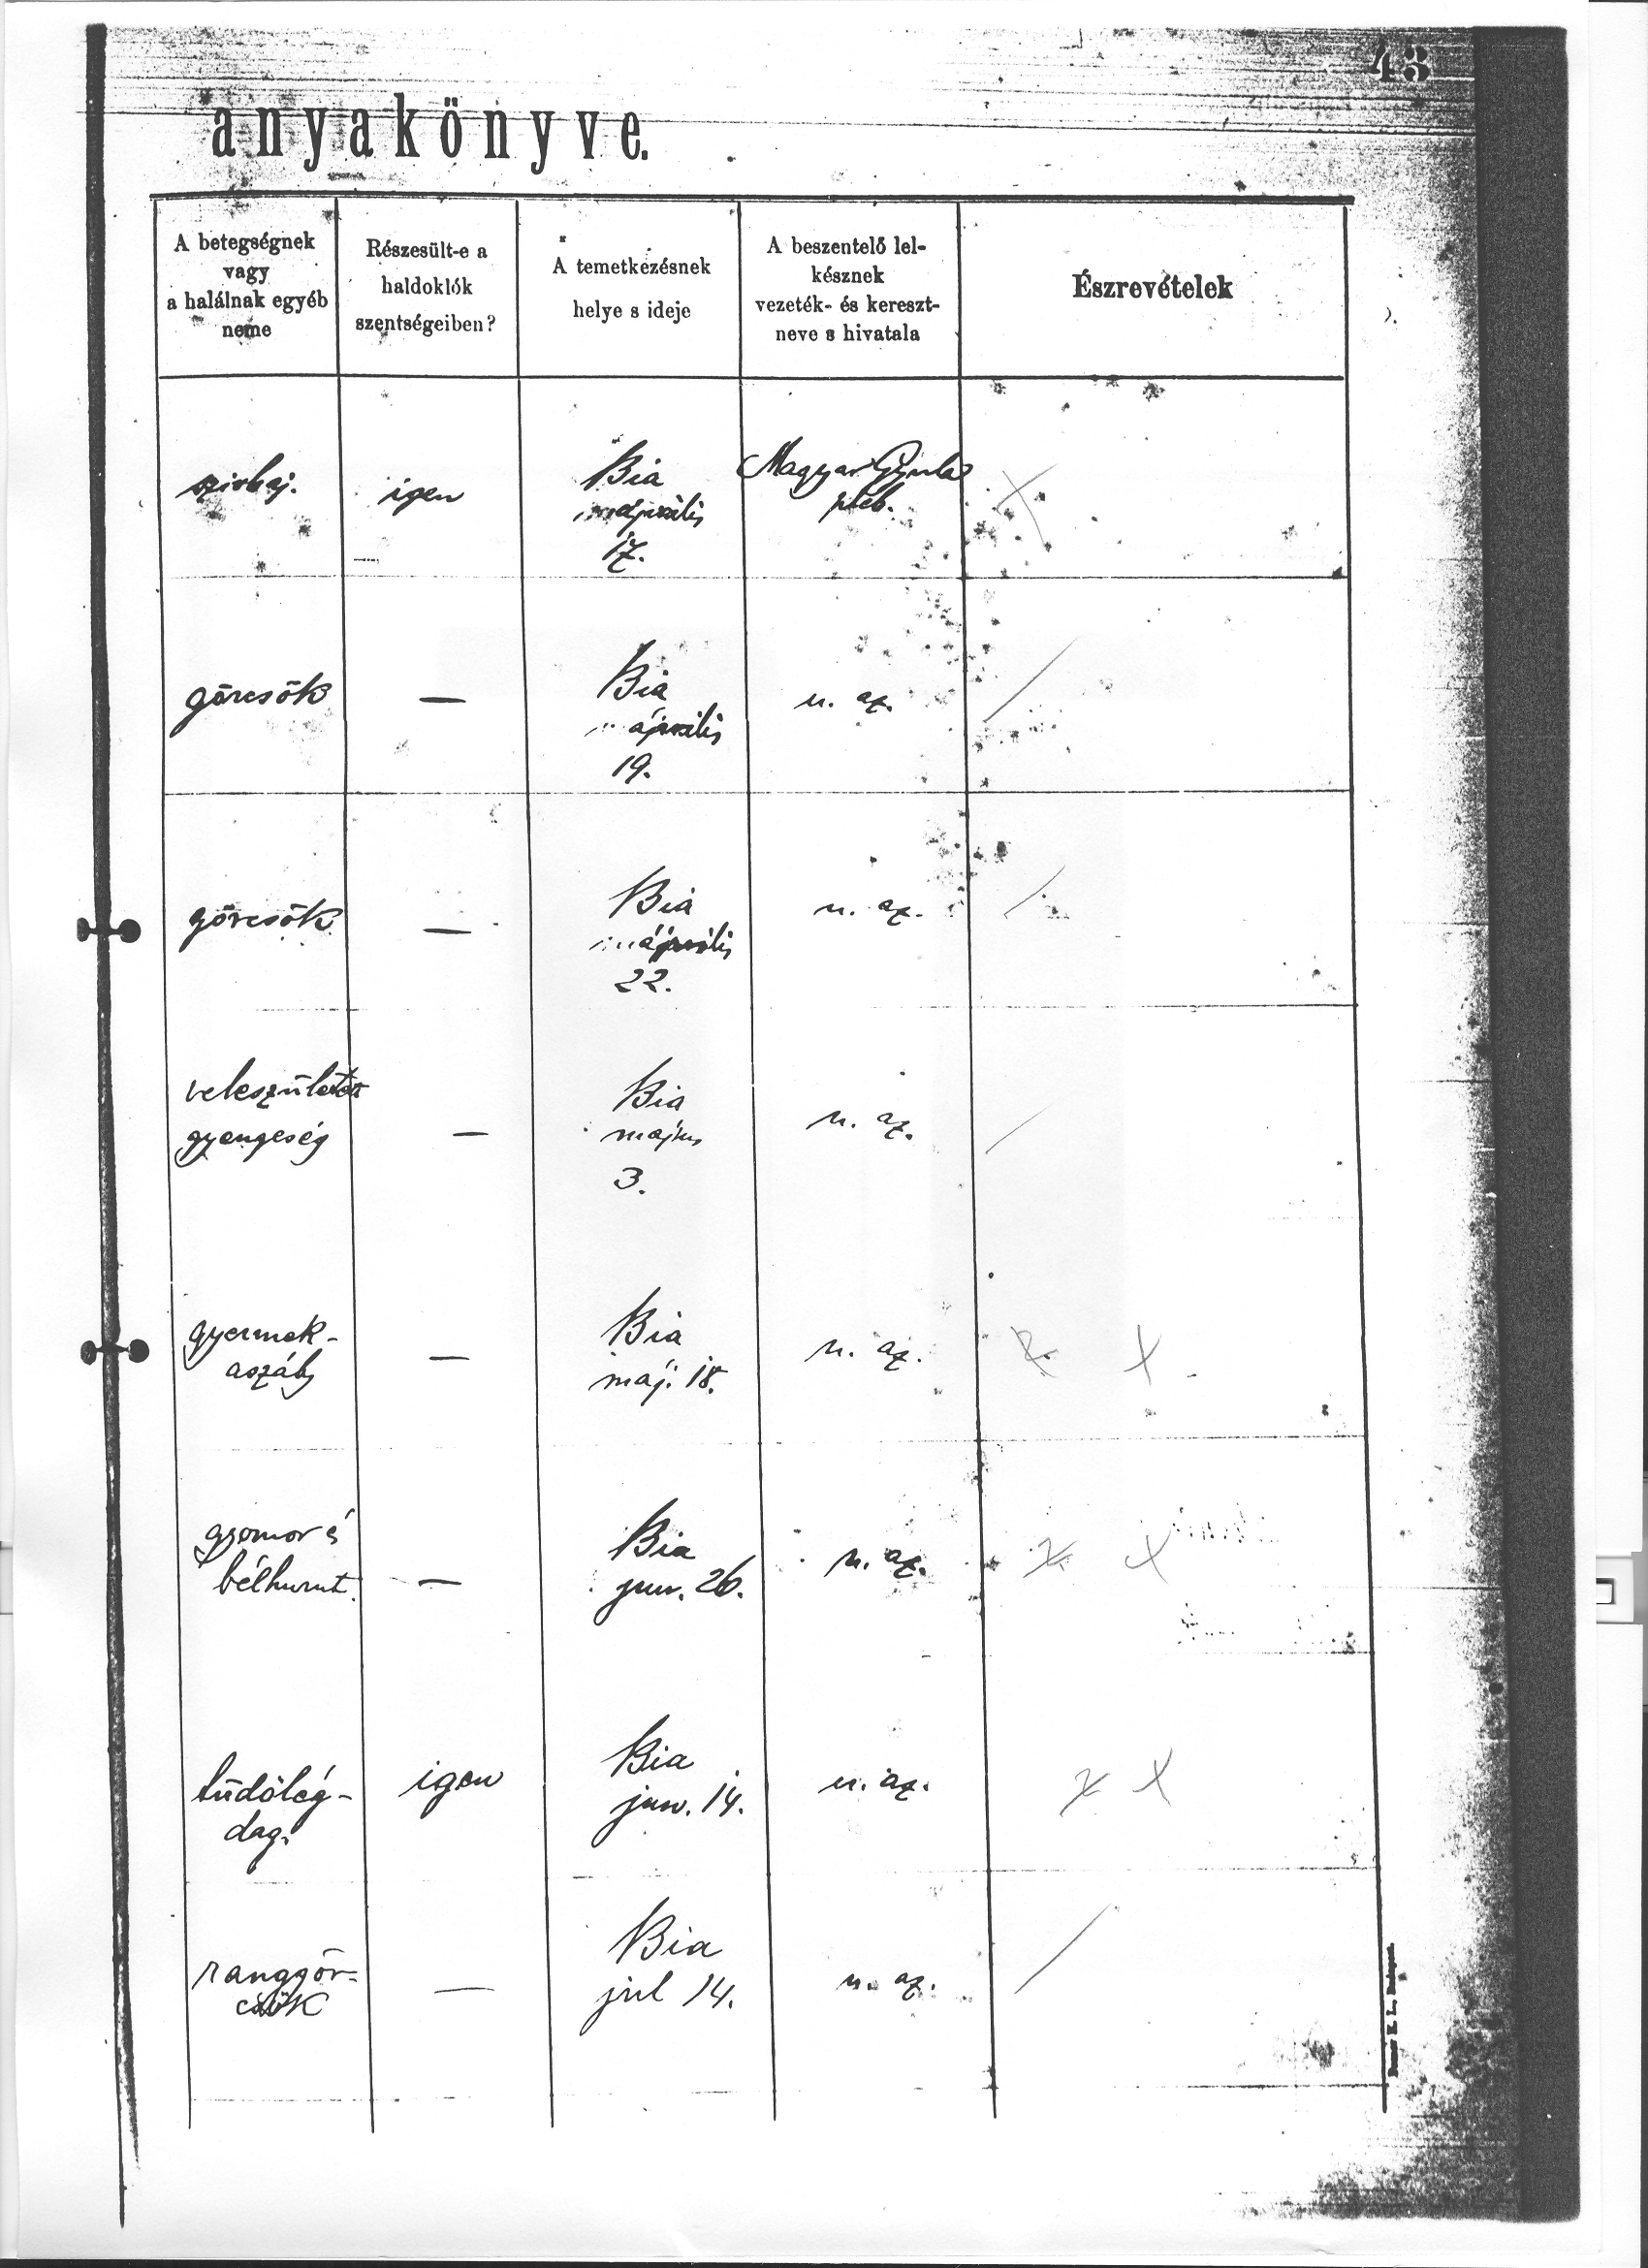 43
anyakönyve.
A betegségnek
vagy
a halálnak egyéb
neme
Részesült-e a
haldoklók
szentségeiben?
A temetkezésnek
helye s ideje
A beszentelő lel-
késznek
vezeték- és kereszt-
neve s hivatala
Észrevételek
szivbaj.
igen
Bia
április
17.
Magyar Gyula
pleb.
görcsök
—
Bia
április
19.
u. az.
görcsök
—
Bia
április
22.
u. az.
veleszületett
gyengeség
—
Bia
május
3.
u. az.
gyermek-
aszály
—
Bia
máj. 18.
u. az.
gyomor és
bélhurut.
—
Bia
jun. 26.
u. az.
tüdőlég-
dag.
igen
Bia
jun. 14.
u. az.
ranggör-
csök
—
Bia
jul 14.
u. az.